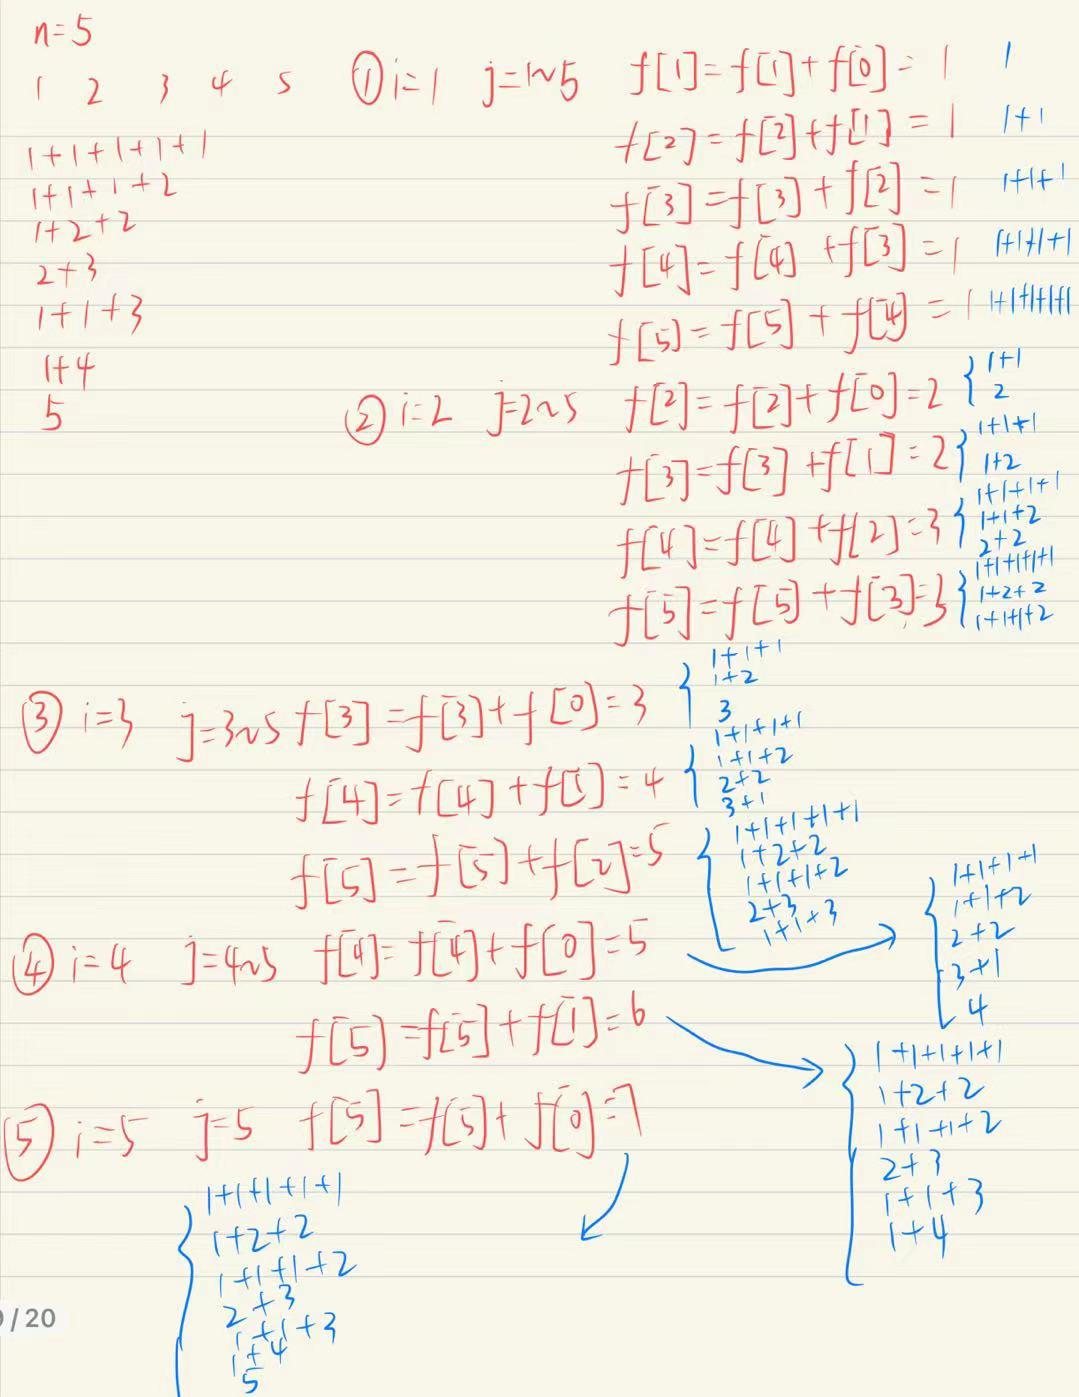 n=5
1 2 3 4 5
1+1+1+1+1
1+1+1+2
1+2+2
2+3
1+1+3
1+4
5
① i=1 j=1~5 f[1]=f[1]+f[0]=1 1
f[2]=f[2]+f[1]=1 1+1
f[3]=f[3]+f[2]=1 1+1+1
f[4]=f[4]+f[3]=1 1+1+1+1
f[5]=f[5]+f[4]=1 1+1+1+1+1
② i=2 j=2~5 f[2]=f[2]+f[0]=2
1+1
2
f[3]=f[3]+f[1]=2
1+1+1
1+2
f[4]=f[4]+f[2]=3
1+1+1+1
1+1+2
2+2
f[5]=f[5]+f[3]=3
1+1+1+1+1
1+2+2
1+1+1+2
③ i=3 j=3~5 f[3]=f[3]+f[0]=3
1+1+1
1+2
3
f[4]=f[4]+f[1]=4
1+1+1+1
1+1+2
2+2
3+1
f[5]=f[5]+f[2]=5
1+1+1+1+1
1+2+2
1+1+1+2
2+3
1+1+3
④ i=4 j=4~5 f[4]=f[4]+f[0]=5
1+1+1+1
1+1+2
2+2
3+1
4
f[5]=f[5]+f[1]=6
1+1+1+1+1
1+2+2
1+1+1+2
2+3
1+1+3
1+4
⑤ i=5 j=5 f[5]=f[5]+f[0]=7
1+1+1+1+1
1+2+2
1+1+1+2
2+3
1+1+3
1+4
5
/ 20